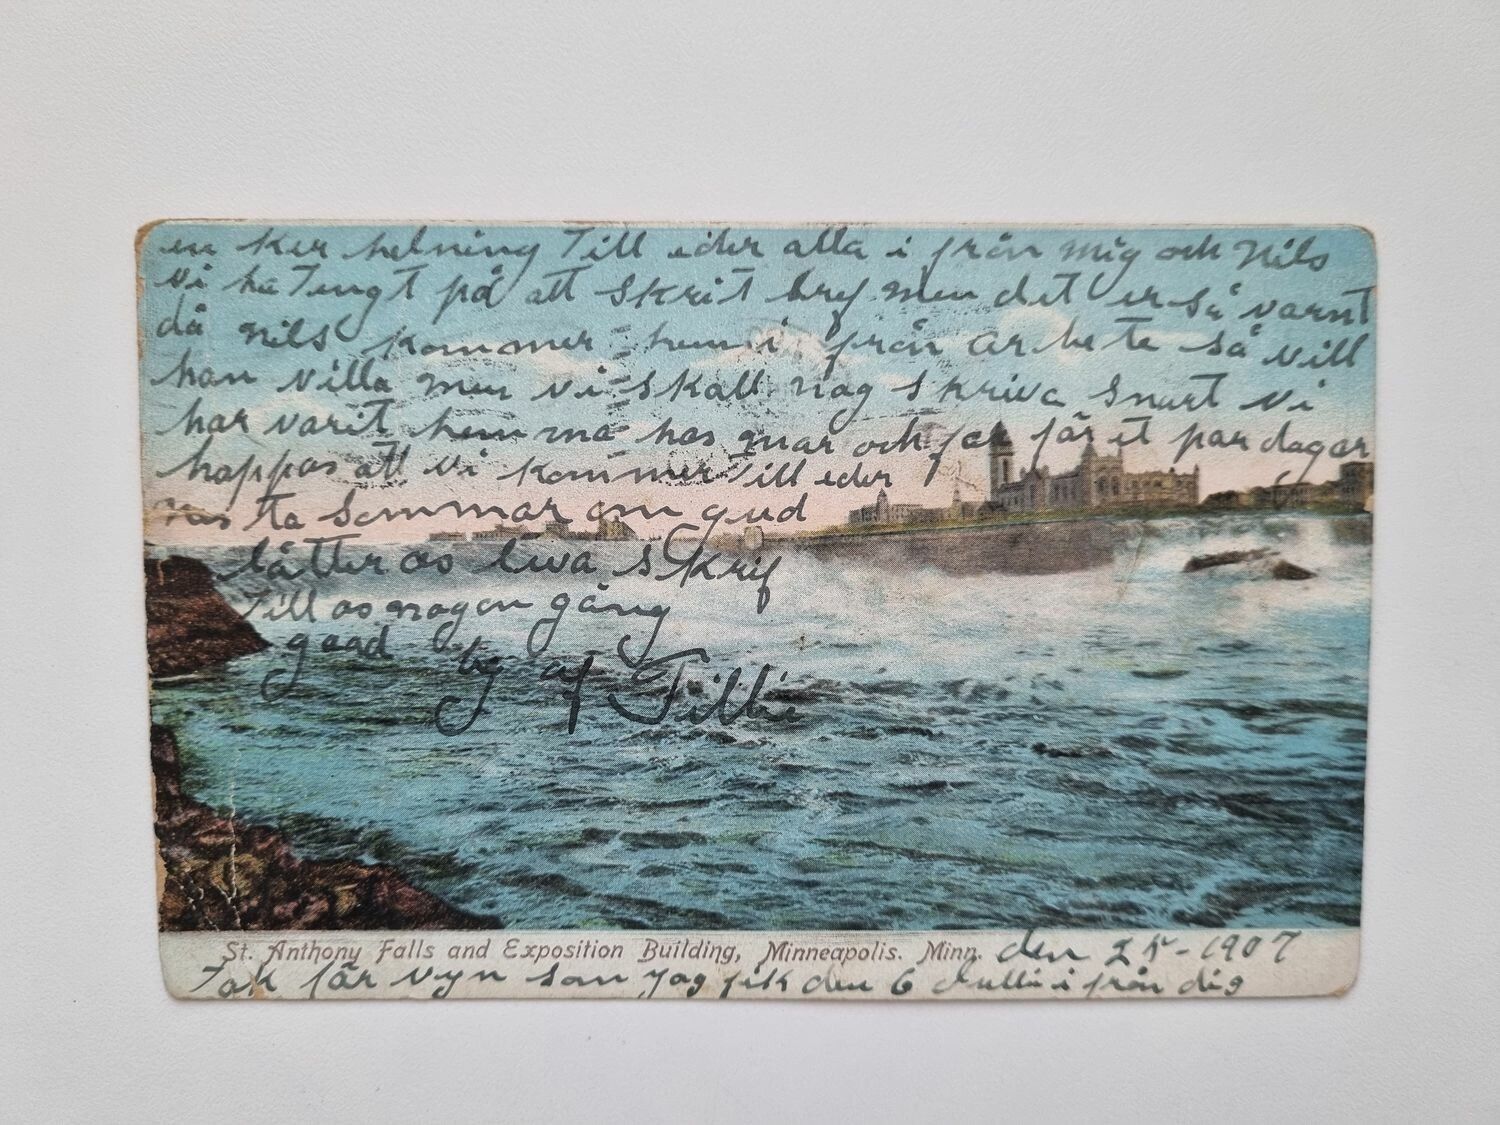 en ker helning Till eder alla i från mig och Nils
vi ha Tengt på att skrit bref men det er så varmt
då nils kommer hem i från arbete så vill
han villa men vi skall nog skriva snart vi
har varit hemma hos mar och far för et par dagar
happas att vi kommer till eder
nesta sommar om gud
låtter os leva skrif
Till os nogon gång
good by af Tillie
St. Anthony Falls and Exposition Building, Minneapolis. Minn. den 25-1907
Tak får vyn som jag fik den 6 Julli i från dig